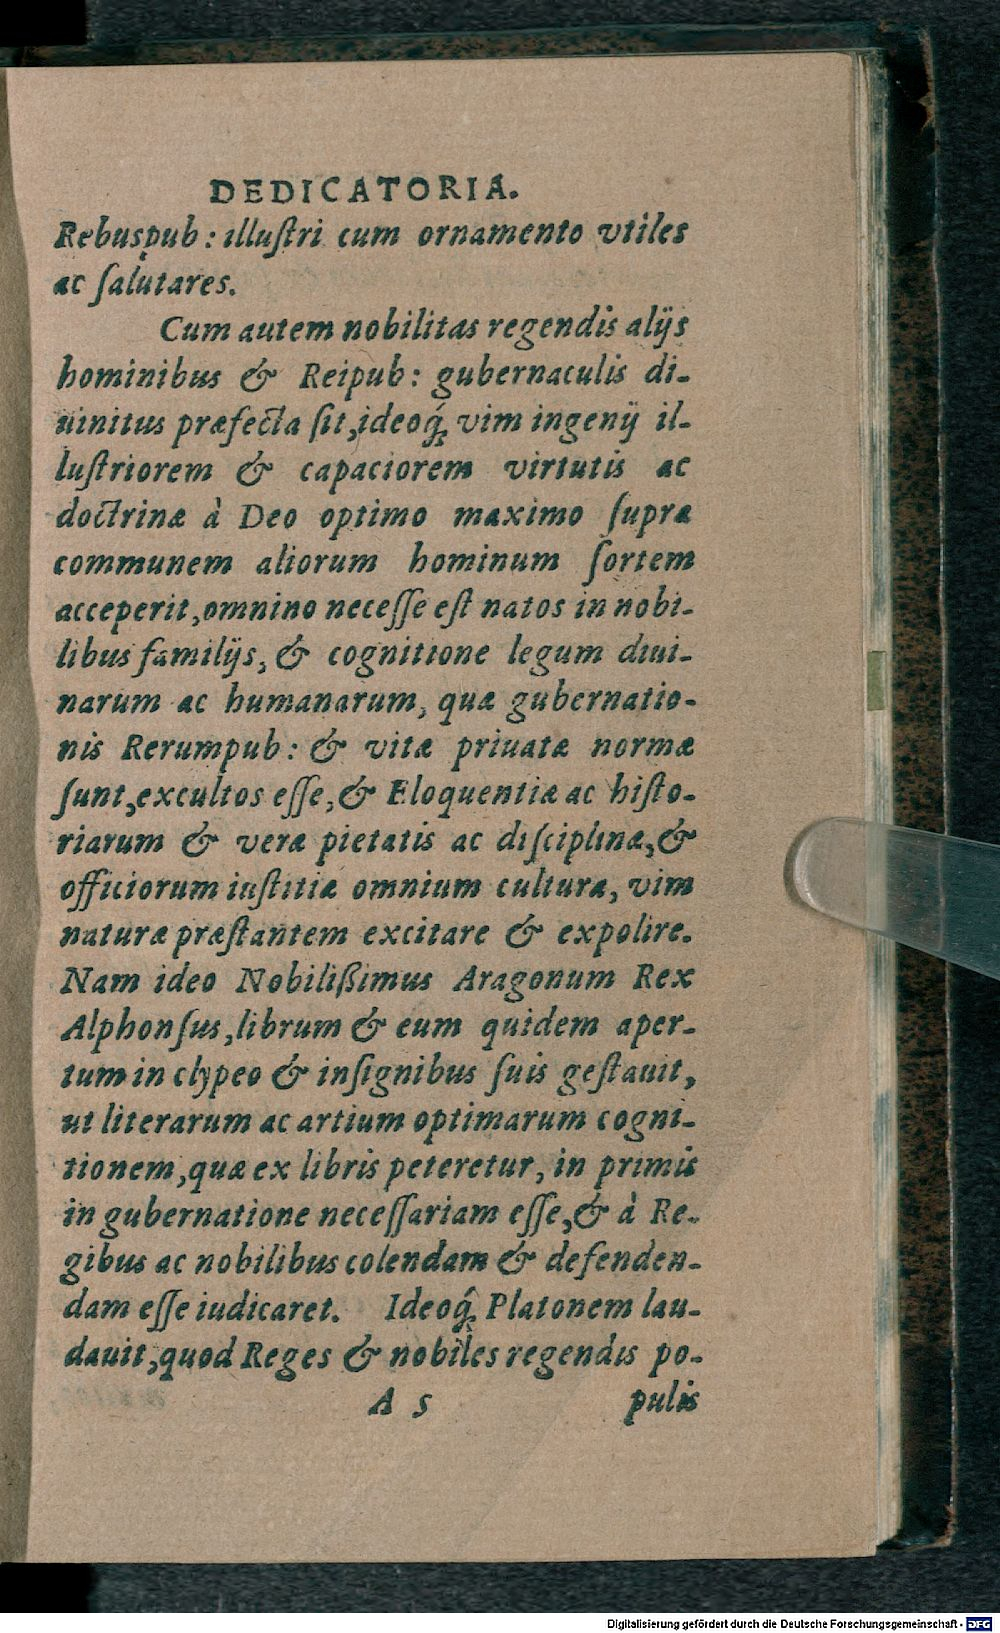 DEDICATORIA.
Rebuspub: illuſtri cum ornamento vtiles
ac ſalutares.
Cum autem nobilitas regendis alijs
hominibus & Reipub: gubernaculis di-
uinitus præfecta ſit, ideoq́; vim ingenij il-
luſtriorem & capaciorem virtutis ac
doctrinæ à Deo optimo maximo ſupra
communem aliorum hominum ſortem
acceperit, omnino neceſſe eſt natos in nobi-
libus familijs, & cognitione legum diui-
narum ac humanarum, quæ gubernatio-
nis Rerumpub: & vitæ priuatæ normæ
ſunt, excultos eſſe, & Eloquentiæ ac hiſto-
riarum & veræ pietatis ac diſciplinæ, &
officiorum iuſtitiæ omnium cultura, vim
naturæ præſtantem excitare & expolire.
Nam ideo Nobilißimus Aragonum Rex
Alphonſus, librum & eum quidem aper-
tum in clypeo & inſignibus ſuis geſtauit,
ut literarum ac artium optimarum cogni-
tionem, quæ ex libris peteretur, in primis
in gubernatione neceſſariam eſſe, & à Re-
gibus ac nobilibus colendam & defenden-
dam eſſe iudicaret. Ideoq́; Platonem lau-
dauit, quod Reges & nobiles regendis po-
A 5 pulis
Digitalisierung gefördert durch die Deutsche Forschungsgemeinschaft - DFG